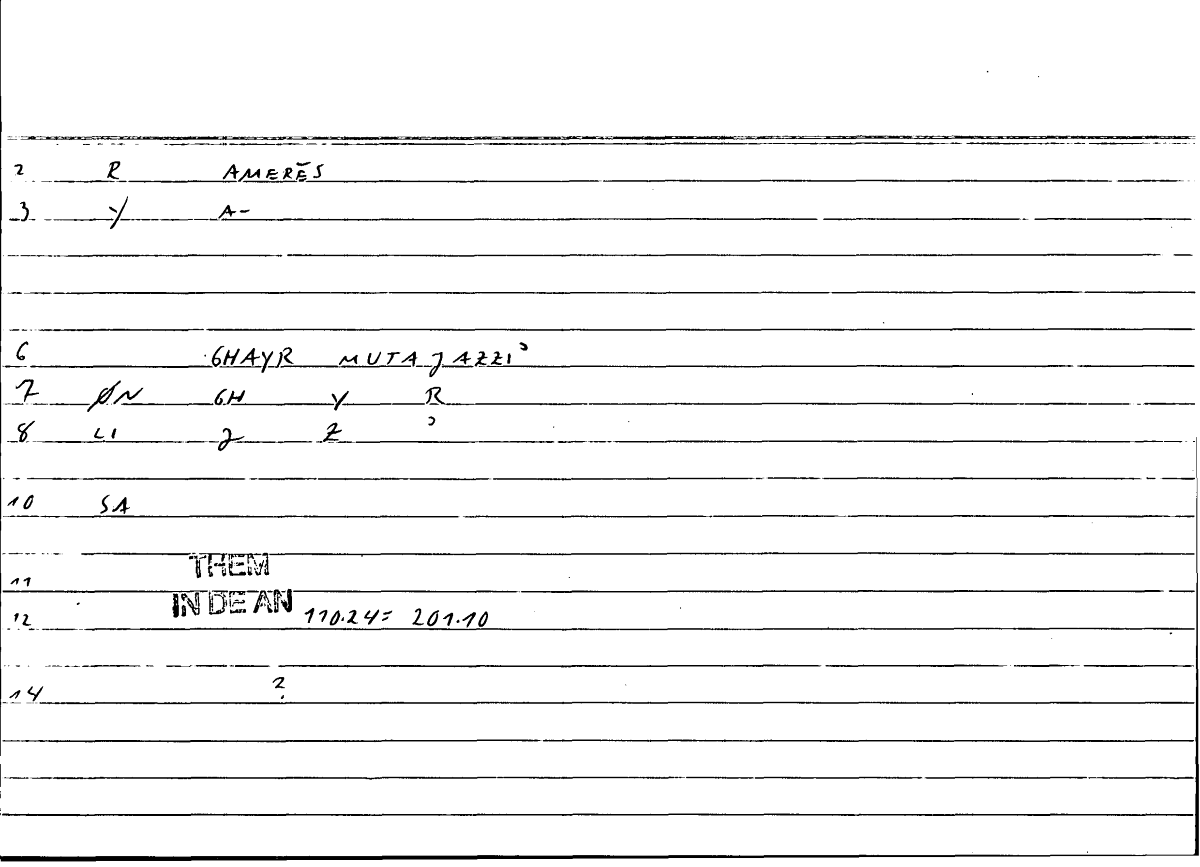 2 R AMERĒS
3 Y A-
6 GHAYR MUTAJAZZIʾ
7 ØN GH Y R
8 LI J Z ʾ
10 SA
THEM
11
IN DE AN
12 110.24= 201.10
14 ?